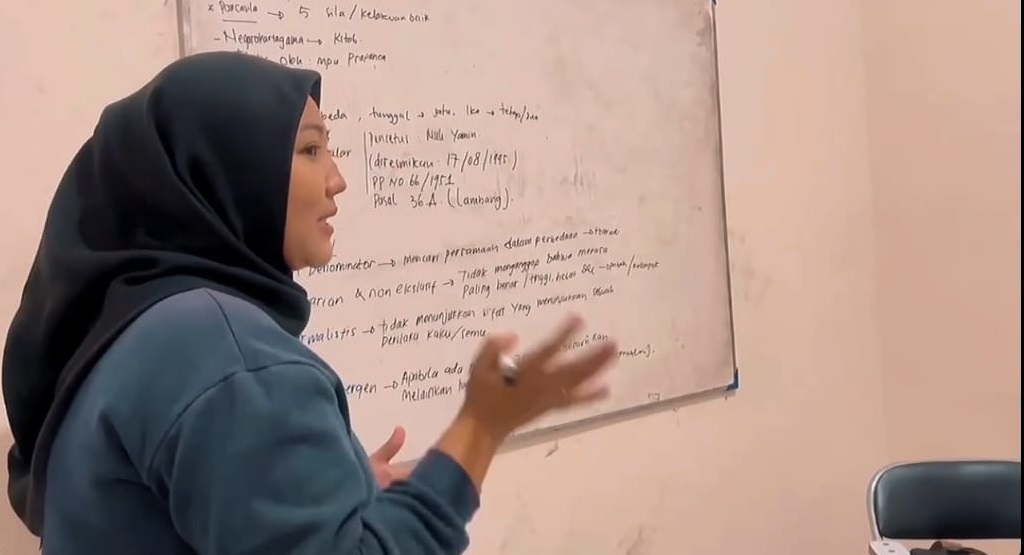 x Pancasila → 5 sila/kelakuan baik
- Negarakertagama → Kitab.
oleh : mpu Prapanca
beda, tunggal → satu, Ika → tetap/
Pencetus : Yamin
(diresmikan : 17/08/1945)
PP NO. 66/1951
Pasal 36 A. (Lambang).
Denominator → mencari persamaan dalam perbedaan →
& non ekslusif → Tidak menganggap bahwa merasa
paling benar/tinggi,
rmalistis → tidak menunjukkan sifat yang menunjukkan sebuah
perilaku kaku/semu
ergen → Apabila ada
melainkan